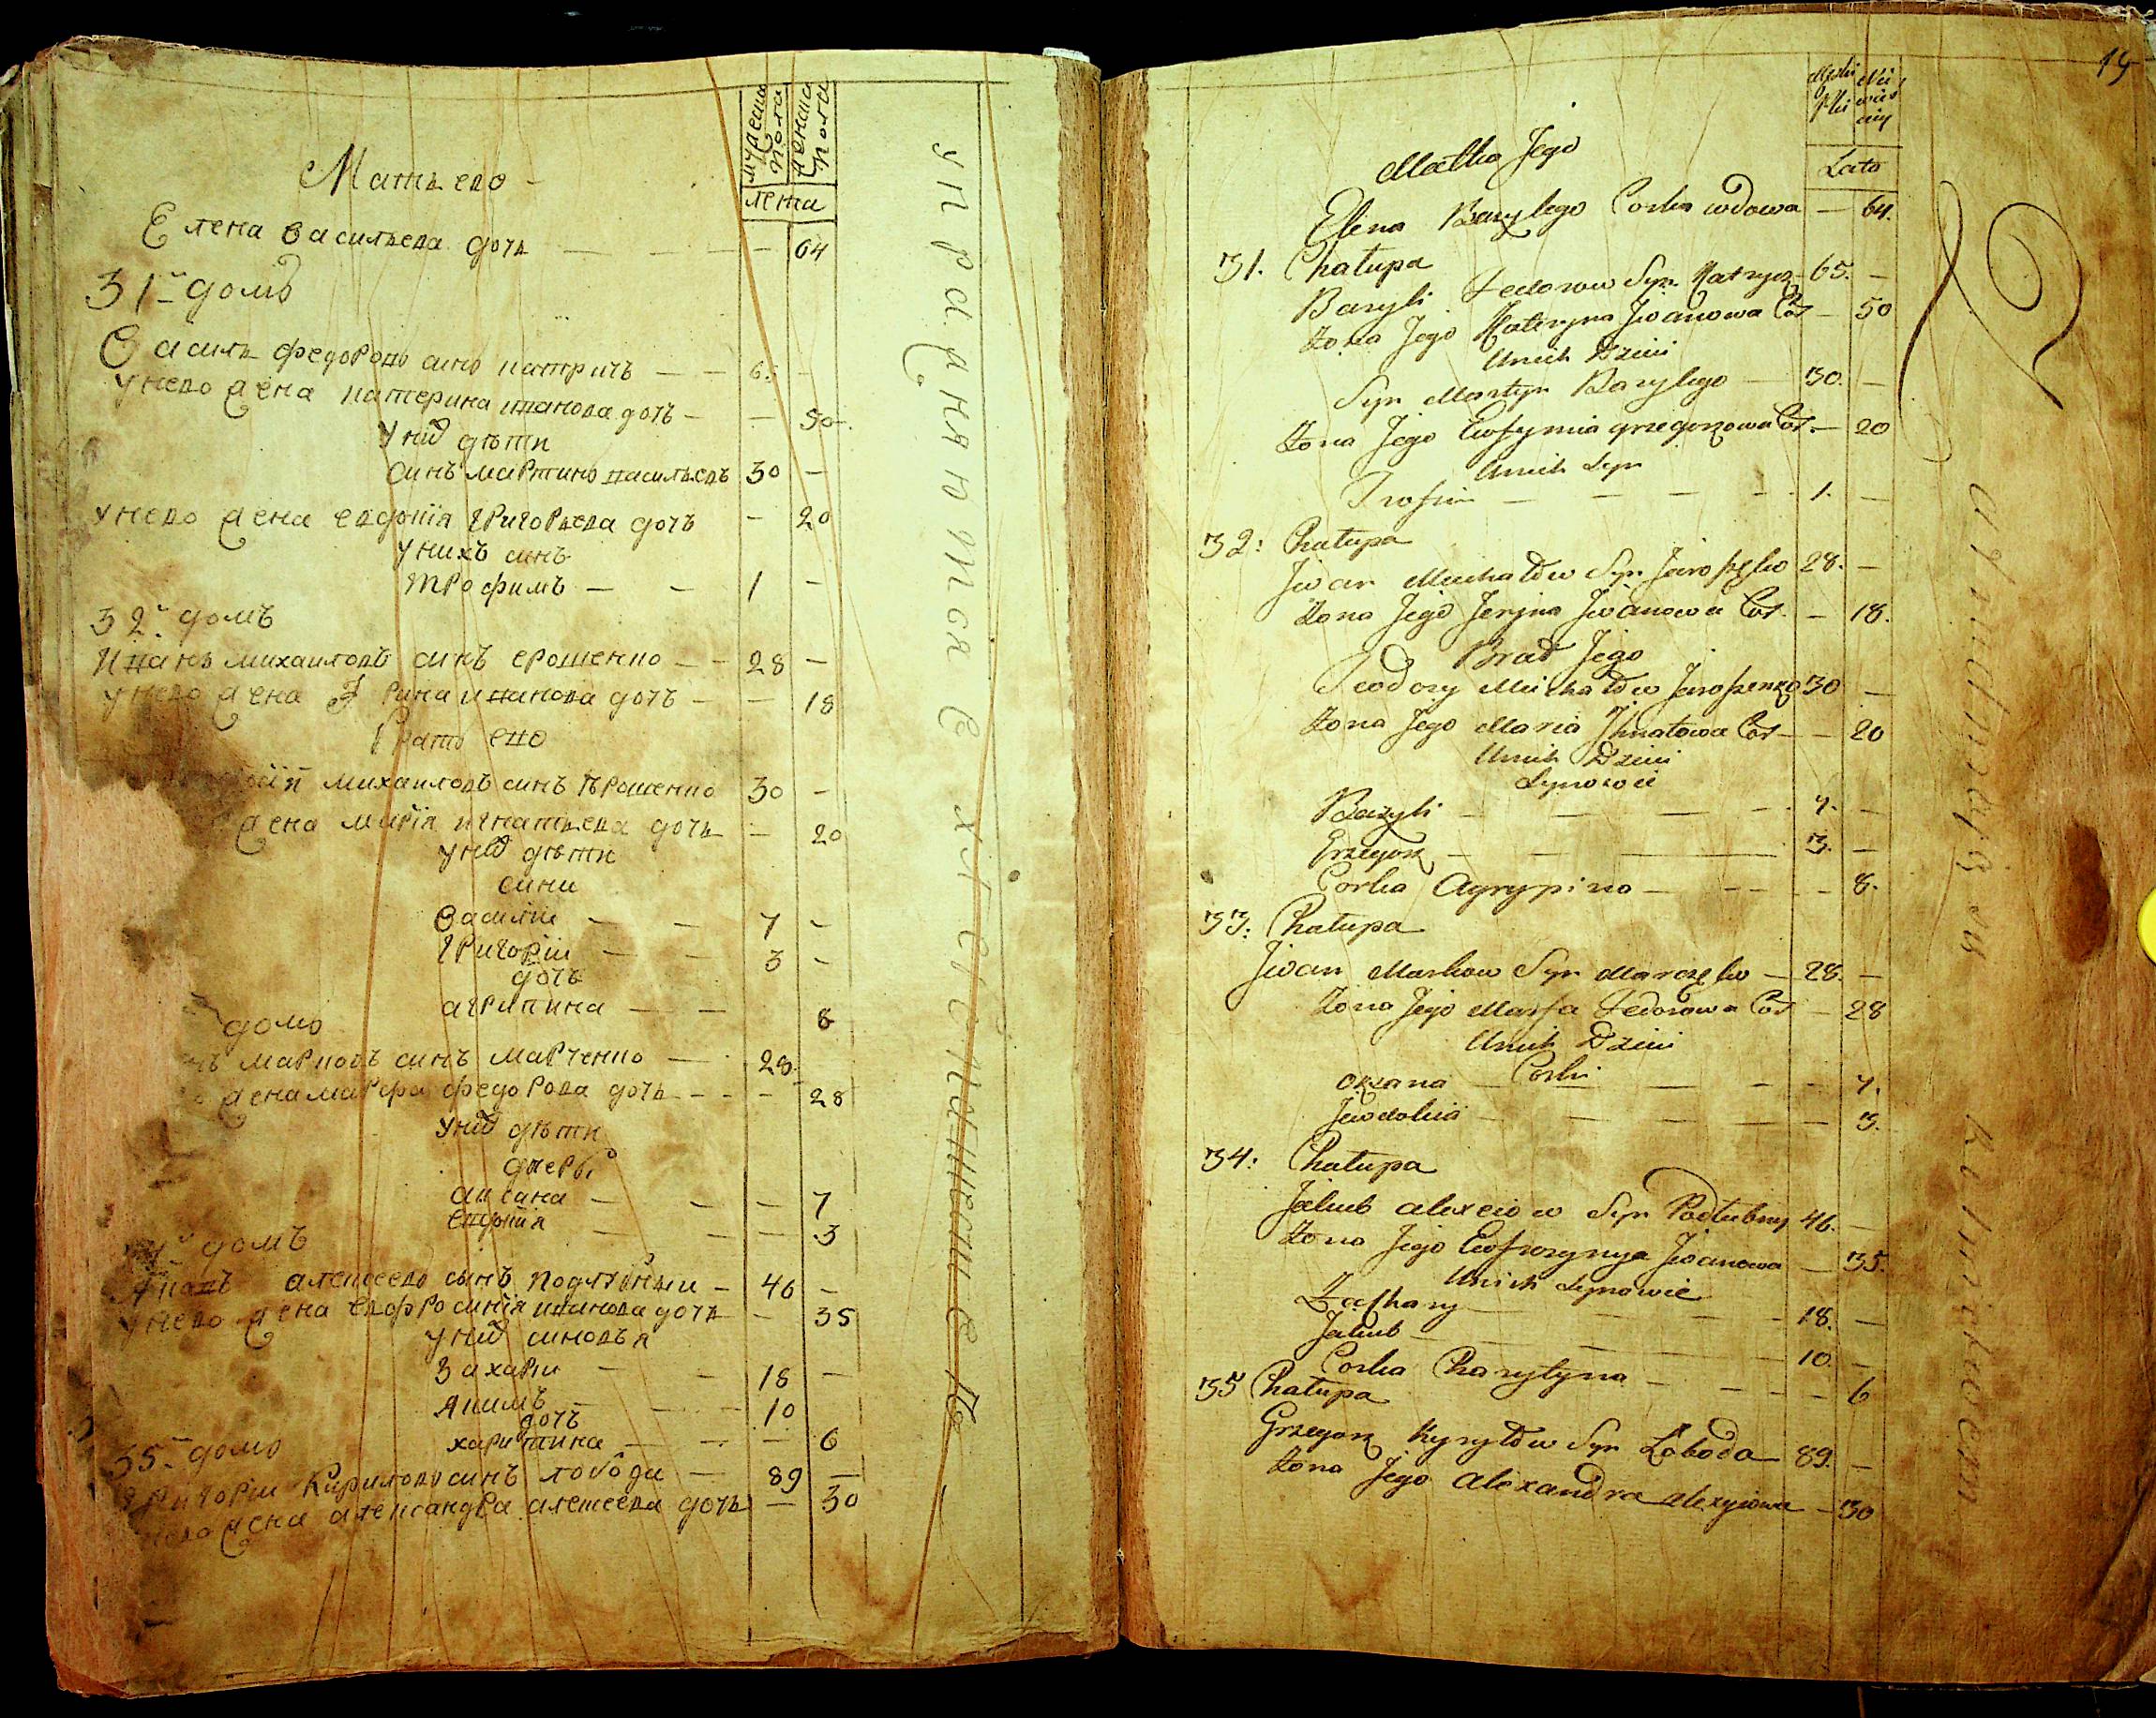 мужеска пола
женска пола
лета
Мать его
Елена васильева дочь — — — 64
31й домъ
Василь федоровъ синъ катричъ — — 65 —
у него жена катерина иванова дочь — — 50
у них дѣти
синъ мартинъ васильевъ 30 —
у него жена евдокія григорьева дочь — 20
у нихъ синъ
трофимъ — — 1 —
32й домъ
Иванъ михаиловъ синъ ерошенко — — 28 —
у него жена Ірина иванова дочь — — 18
братъ его
михаиловъ синъ ярошенко 30 —
жена марія игнатьева дочь — 20
у них дѣти
сини
василіи — — 7 —
григоріи — — 3 —
дочь
агрипина — — 8
домъ
марковъ синъ марченко — 28
жена марфа федорова дочь — — — 28
у них дѣти
дщери
аксана — — — 7
евдокія — — — 3
домъ
Яковъ алексеевъ сынъ подлубныи — 46 —
у него жена евфросинія иванова дочь — 35
у них синовья
захаріи — — 18 —
якимъ — — 10
дочь
харитина — — — 6
35й домъ
григоріи Кириловъ синъ лобода — 89 —
него жена александра алексеева дочь — 30
упраждняются
хлебопашестве
19
Lato
Matka Jego
Elena Bazylego Corka wdowa — 64.
31. Chałupa
Bazyli Fedorow Syn Katrycz — 65. —
Żona Jego Kateryna Jwanowa Cór — 50
Unich Dzieci
Syn Martyn Bazylego — 30. —
Żona Jego Eufymia grzegorzowa Cór. — 20
Unich Syn
Trofim — — — — 1. —
32: Chałupa
Jwan Michałow Syn Jaroszęko 28. —
Żona Jego Jeryna Jwanowa Cór. — 18.
Brat Jego
Teodory Michałow Jaroszenko 30 —
Żona Jego Maria Jhnatowa Cór — — 20
Unich Dzieci
Synowie
Bazyli — — — — 7. —
Grzegorz — — — 3. —
Corka Agrypina — — — — 8.
33: Chałupa
Jwan Markow Syn Marczęko — 28. —
Żona Jego Marfa Fedorowa Cór — 28
Unich Dzieci
Corki
oxana — — — — 7.
Jewdokia — — — — — 3.
34: Chałupa
Jakub alexeiow Syn Podłubny 46. —
Żona Jego Eufrozynya Jwanowa — 35.
Unich Synowie
Zachary — — — — 18. —
Jakub — — — — 10. —
Corka Charytyna — — — — 6
35 Chałupa
Grzegorz Kyryłow Syn Łoboda — 89. —
Żona Jego Alexandra alexyiowa — 30